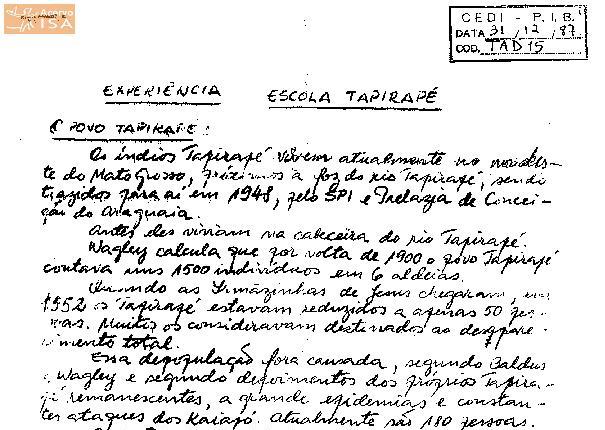 Acervo
ISA
CEDI - P. I. B.
DATA 31 / 12 / 87
COD. TAD 15
EXPERIÊNCIA ESCOLA TAPIRAPÉ
O POVO TAPIRAPÉ:
Os índios Tapirapé vivem atualmente no nordes-
te do Mato Grosso, próximos a foz do rio Tapirapé, sendo
trazidos para aí em 1948, pelo SPI e Prelazia de Concei-
ção do Araguaia.
Antes eles viviam na cabeceira do rio Tapirapé.
Wagley calcula que por volta de 1900 o povo Tapirapé
contava uns 1500 indivíduos em 6 aldeias.
Quando as Irmãzinhas de Jesus chegaram, em
1952 os Tapirapé estavam reduzidos a apenas 50 pes-
soas. Muitos os consideravam destinados ao desapare-
cimento total.
Essa depopulação fora causada, segundo Baldus
e Wagley e segundo depoimentos dos próprios Tapira-
pé remanescentes, a grande epidemias e constan-
tes ataques dos Kaiapó. Atualmente são 180 pessoas.